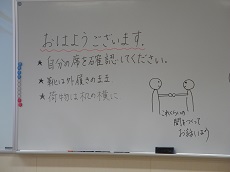 おはようございます.
★自分の席を確認してください。
★靴は外履きのまま
★荷物は机の横に
これくらいの
間をつくって
お話しよう